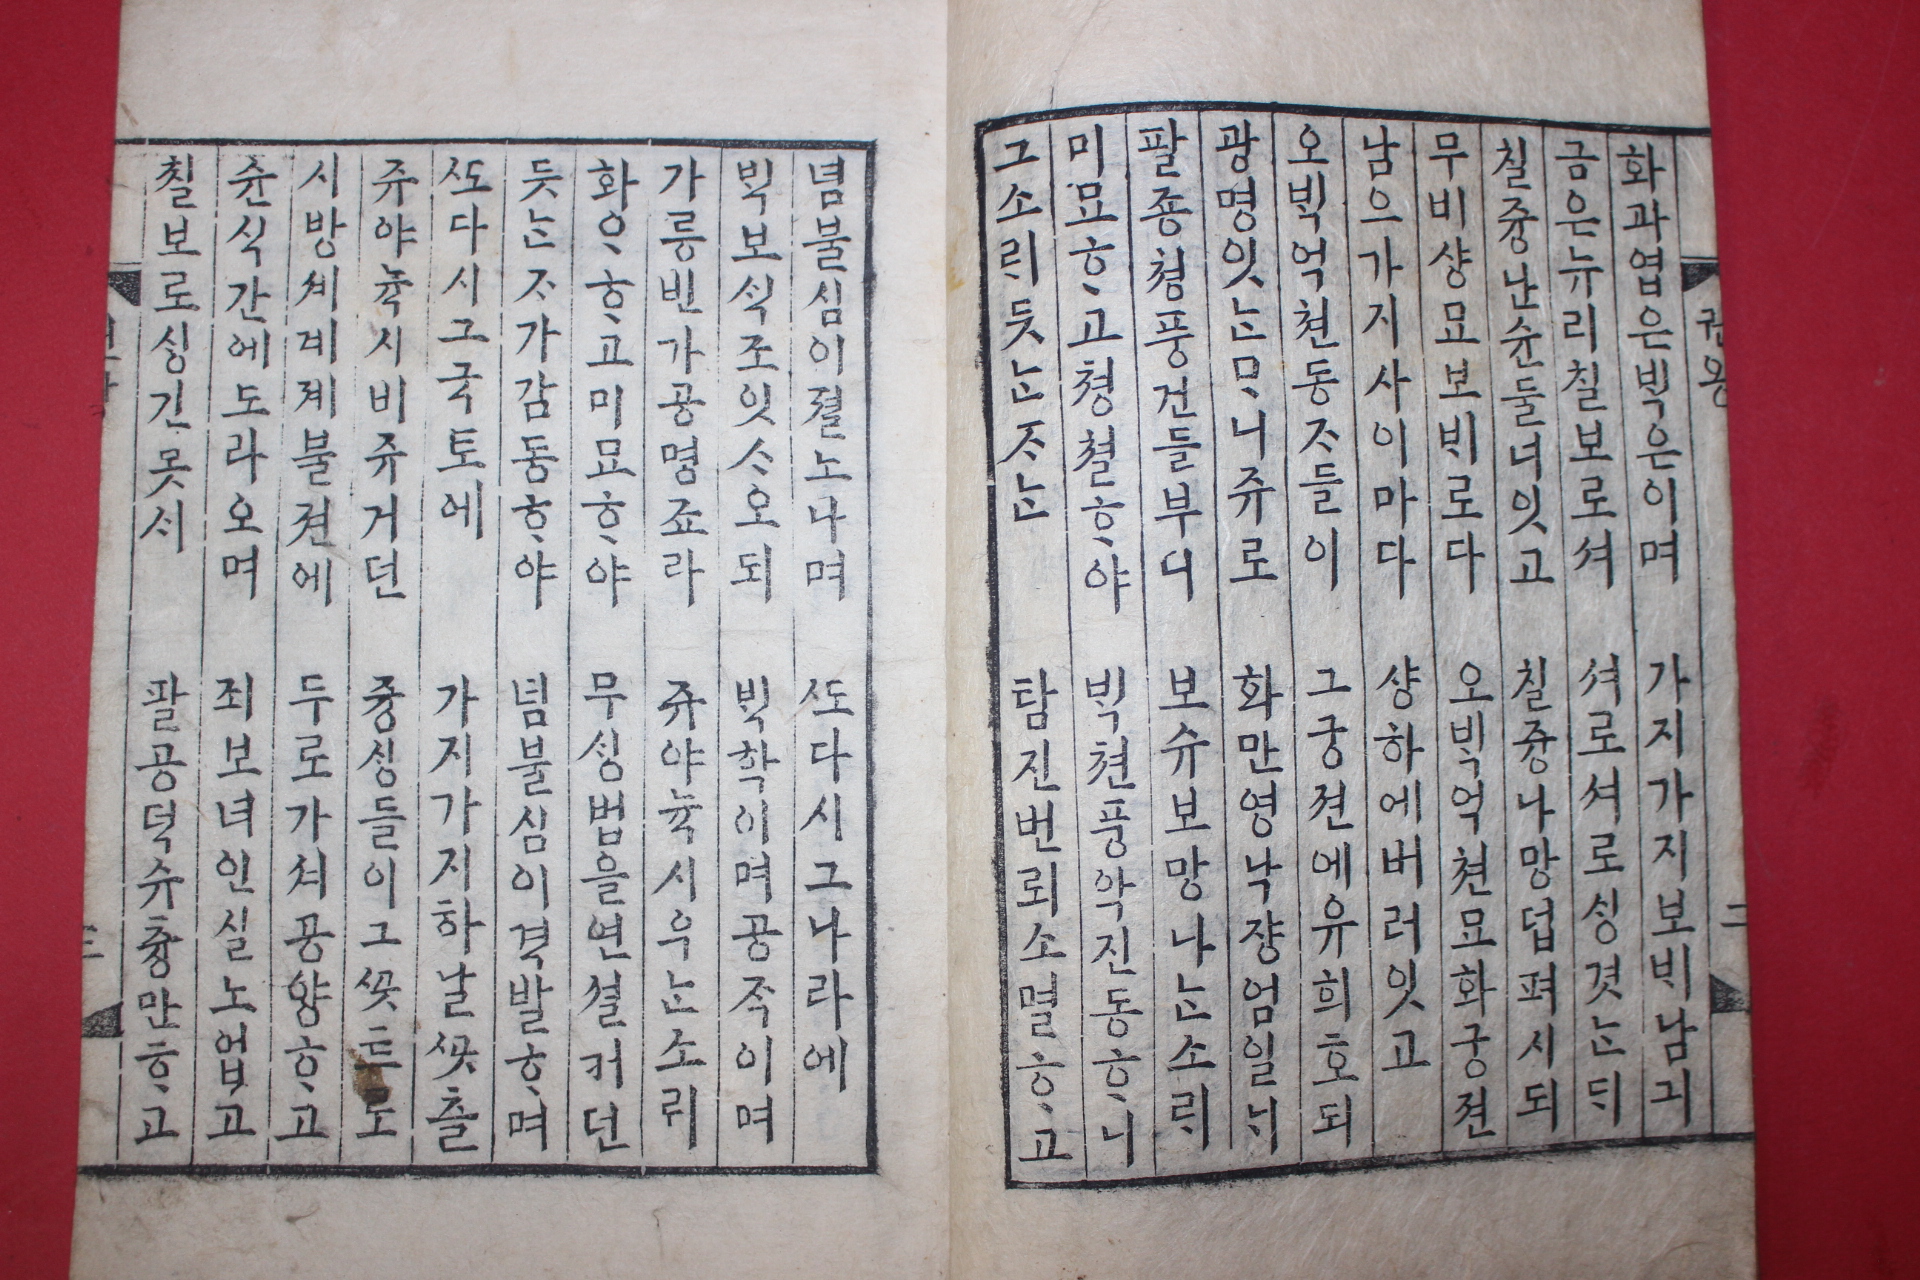 권왕
二
화과엽은ᄇᆡᆨ은이며 가지가지보ᄇᆡ남긔
금은뉴리칠보로셔 셔로셔로셩겻ᄂᆞᆫᄃᆡ
칠즁난슌둘너잇고 칠즁나망덥펴시되
무비샹묘보ᄇᆡ로다 오ᄇᆡᆨ억쳔묘화궁젼
남으가지사이마다 샹하에버러잇고
오ᄇᆡᆨ억쳔동ᄌᆞ들이 그궁젼에유희호되
광명잇ᄂᆞᆫᄆᆞ니쥬로 화만영낙쟝엄일ᄂᆡ
팔죵쳥풍건들부니 보슈보망나ᄂᆞᆫ소ᄅᆡ
미묘ᄒᆞ고쳥쳘ᄒᆞ야 ᄇᆡᆨ쳔풍악진동ᄒᆞ니
그소ᄅᆡ듯ᄂᆞᆫᄌᆞᄂᆞᆫ 탐진번뢰소멸ᄒᆞ고
념불심이졀노나며 ᄯᅩ다시그나라에
ᄇᆡᆨ보ᄉᆡᆨ조잇ᄉᆞ오되 ᄇᆡᆨ학이며공작이며
가릉빈가공명죠라 쥬야뉵시우ᄂᆞᆫ소ᄅᆡ
화ᄋᆞᄒᆞ고미묘ᄒᆞ야 무ᄉᆡᆼ법을연셜커던
듯ᄂᆞᆫᄌᆞ가감동ᄒᆞ야 념불심이격발ᄒᆞ며
ᄯᅩ다시그국토에 가지가지하날ᄭᅩᆺ츨
쥬야뉵시비쥬거던 즁ᄉᆡᆼ들이그ᄭᅩᆺ트로
시방셰계계불젼에 두로가셔공양ᄒᆞ고
슌식간에도라오며 죄보녀인실노업고
칠보로ᄉᆡᆼ긴못시 팔공덕슈츙만ᄒᆞ고